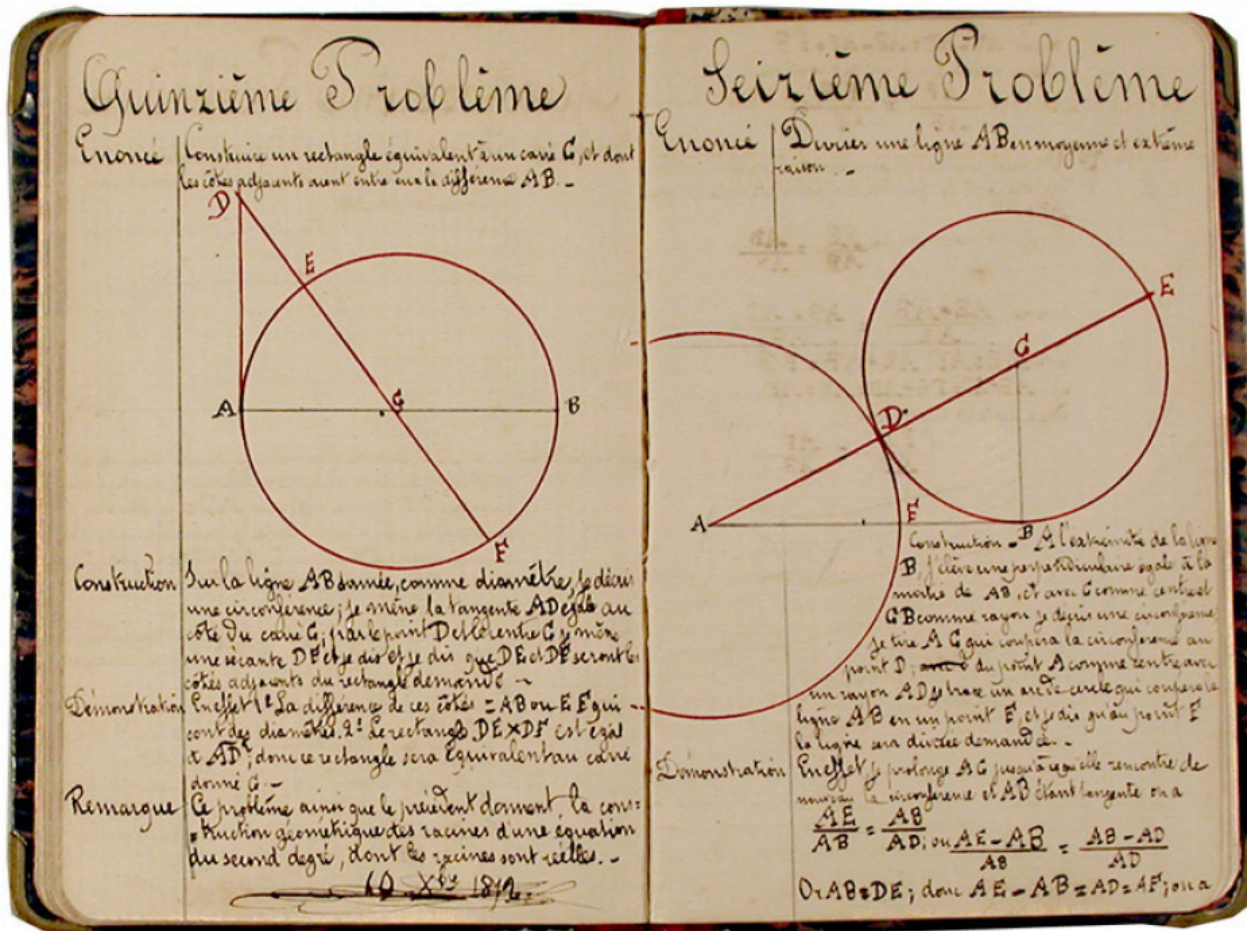 Quinzième Problème
Enoncé Construire un rectangle équivalent à un carré C, et dont
les côtés adjacents aient entre eux la différence AB. _
D
E
A
C
B
F
Construction Sur la ligne AB donnée, comme diamètre, je décris
une circonférence; je mène la tangente AD égale au
côté du carré C; par le point D et le centre C je mène
une sécante DF et je dis et je dis que DE et DF seront les
côtés adjacents du rectangle demandé _
Démonstration En effet 1º La différence de ces côtés = AB ou EF qui
sont des diamètres. 2º Le rectangle DE × DF est égal
à AD²; donc ce rectangle sera équivalent au carré
donné C _
Remarque Ce problème ainsi que le précédent donnent la cons=
=truction géométrique des racines d'une équation
du second degré, dont les racines sont réelles. _
Seizième Problème
Enoncé Diviser une ligne AB en moyenne et extrême
raison. _
E
C
D
A
F
B
Construction _ A l'extrémité de la ligne
B, j'élève une perpendiculaire égale à la
moitié de AB, et avec C comme centre et
CB comme rayon je décris une circonférence
Je tire AC qui coupera la circonférence au
point D; du point A comme centre avec
un rayon AD je trace un arc de cercle qui coupera la
ligne AB en un point F, et je dis qu'au point F
la ligne sera divisée demandé. _
Démonstration En effet je prolonge AC jusqu'à ce qu'elle rencontre de
nouveau la circonférence et AB étant tangente on a
AE/AB = AB/AD; ou AE-AB/AB = AB-AD/AD
Or AB=DE; donc AE-AB=AD=AF; on a